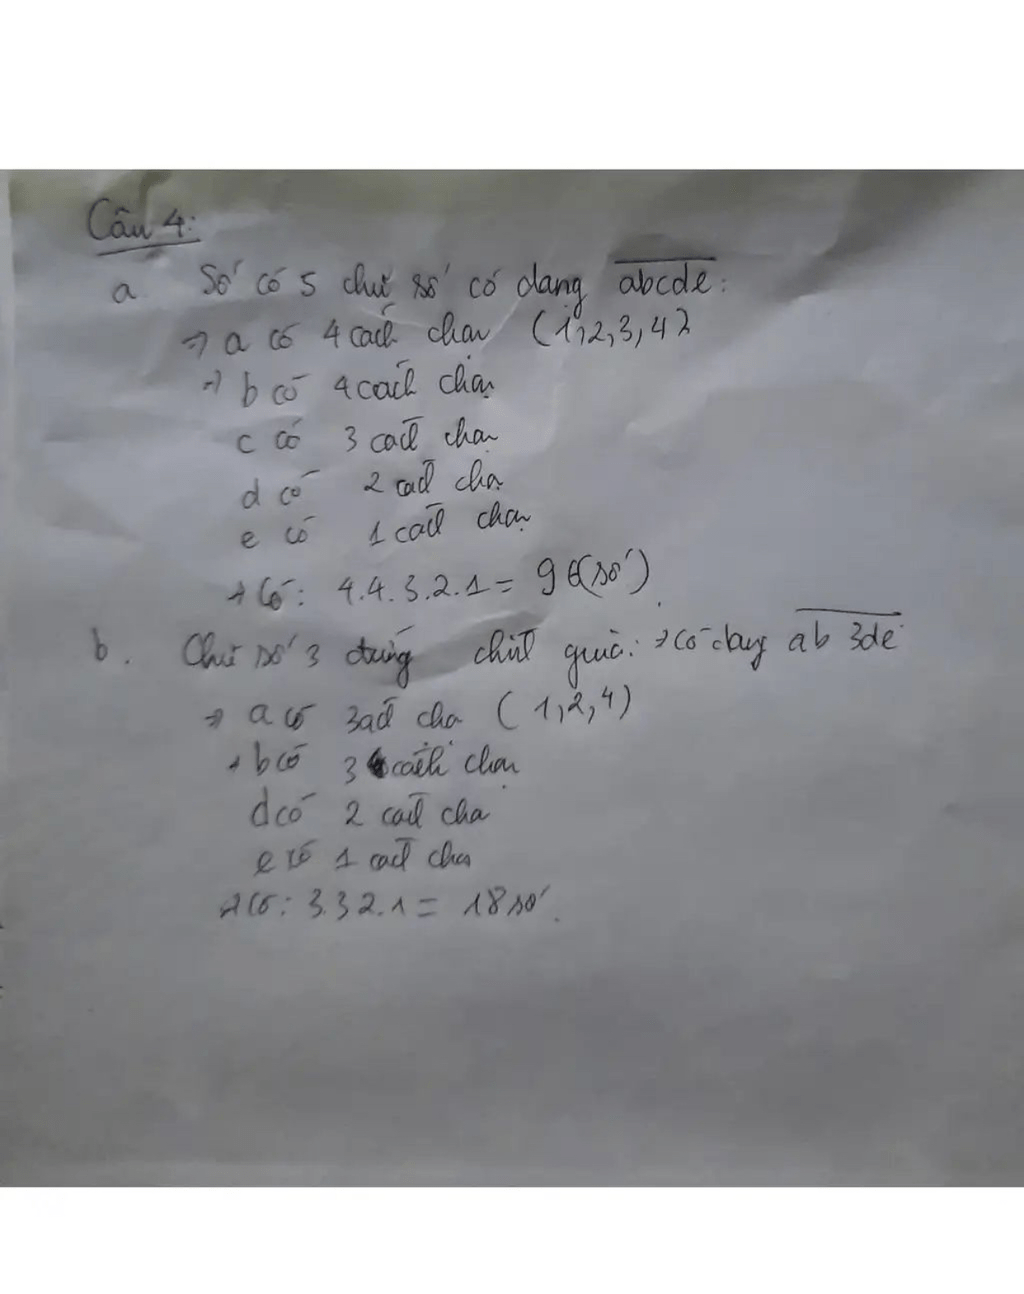 Câu 4:
a. Số có 5 chữ số có dạng abcde:
=> a có 4 cách chọn (1,2,3,4)
=> b có 4 cách chọn
c có 3 cách chọn
d có 2 cách chọn
e có 1 cách chọn
→ Có: 4.4.3.2.1 = 96 (số).
b. Chữ số 3 đứng chính giữa: → có dạng ab3de
=> a có 3 cách chọn (1,2,4)
→ b có 3 cách chọn
d có 2 cách chọn
e có 1 cách chọn
→ Có: 3.3.2.1 = 18 số.